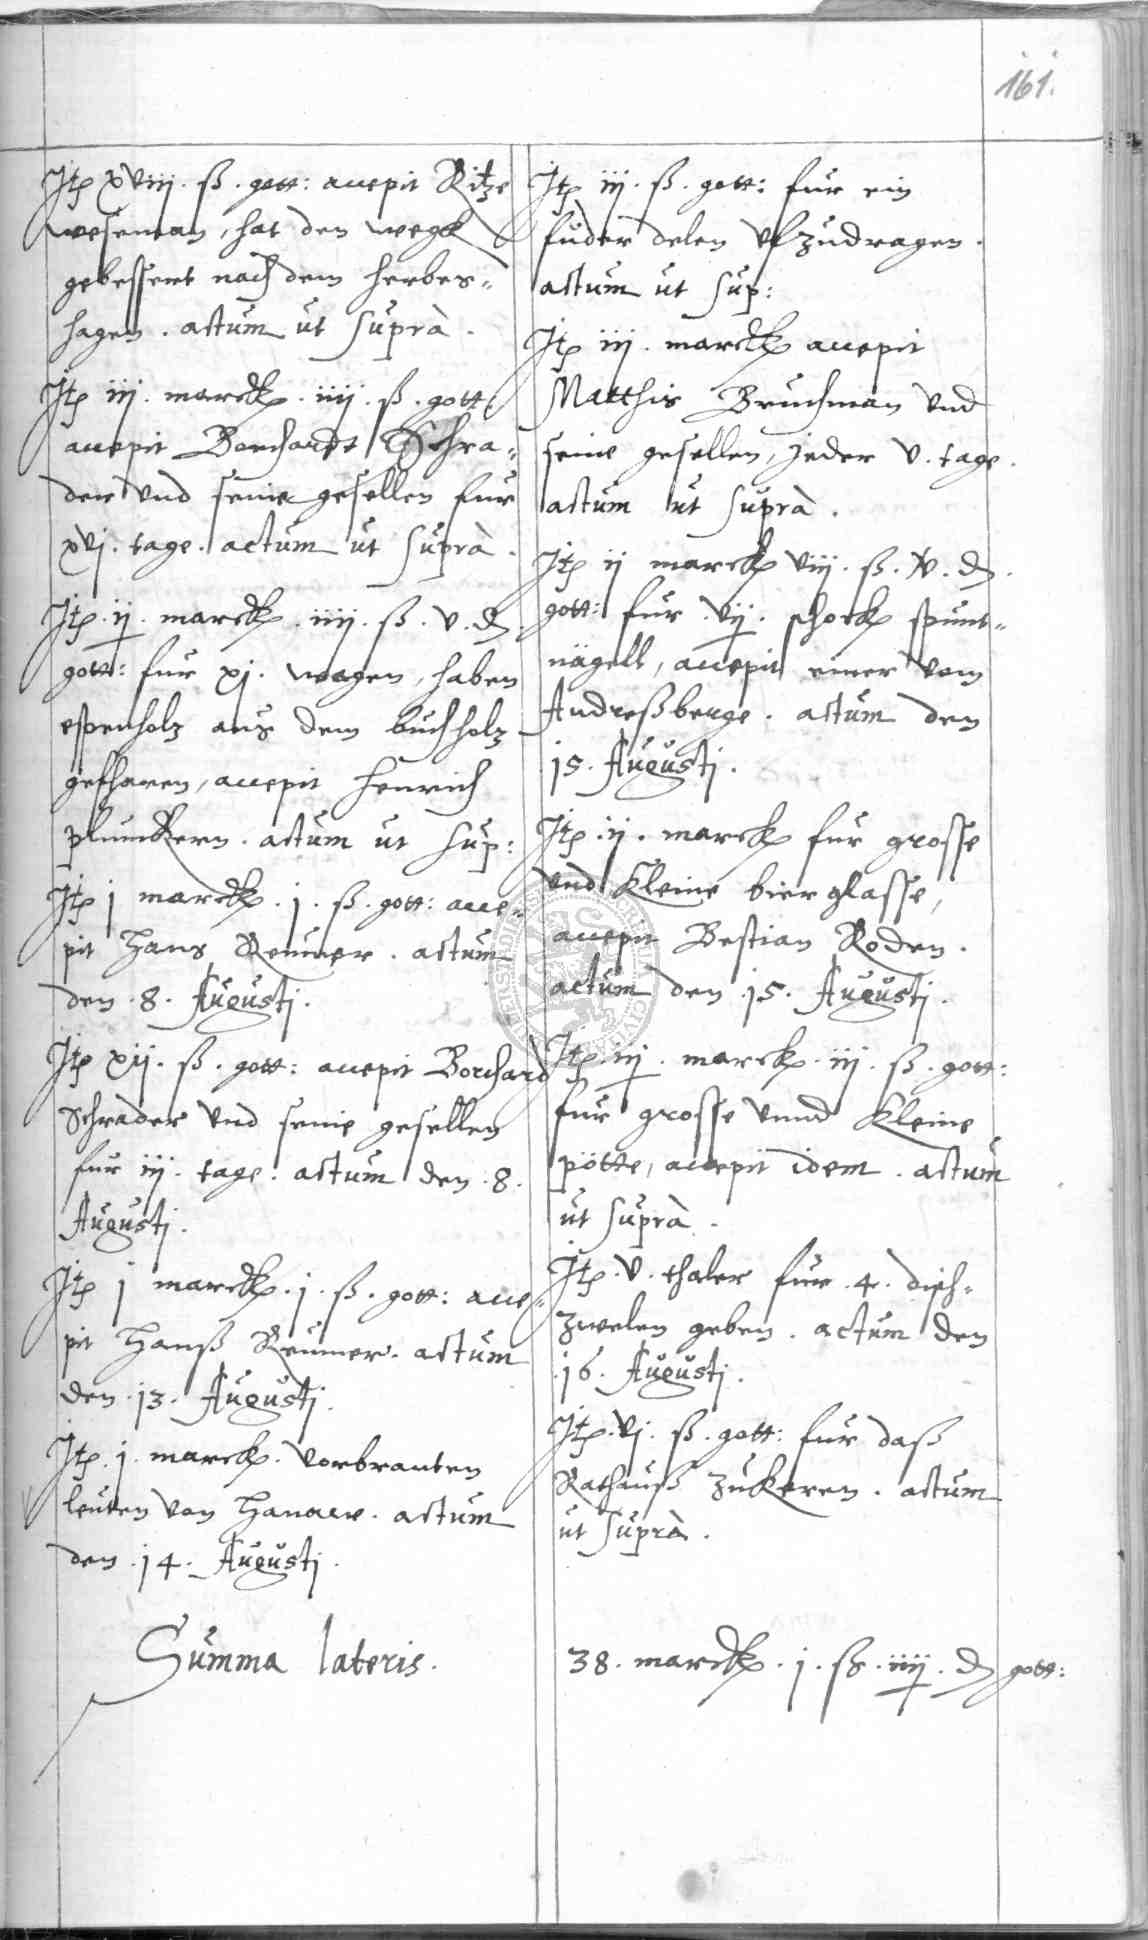 161.
Itp xviij. ß. gott: accepit Ritze
weseman, hat den wegk
gebessert nach dem herbes-
hagen. actum ut suprà.
Itp iij. marckp. iiij. ß. gott:
accepit Borchardt Schra-
der und seine gesellen fur
xvj. tage. actum ut suprà.
Itp. ij. marckp. iiij. ß. v. d.
gott: fur xj. wagen, haben
espenholz aus dem buchholz
gefharen, accepit Henrich
plumckern. actum ut sup:
Itp j marckp. j. ß. gott: acce-
pit Hans Reumer. actum
den .8. Augustj.
Itp xij. ß. gott: accepit Borchard
Schrader und seine gesellen
fur iij. tage. actum den .8.
Augustj.
Itp j marckp. j. ß. gott: acce-
pit Hanß Reumer. actum
den .13. Augustj.
Itp. j. marckp. vorbranten
leuten von Hanaw. actum
den .14. Augustj.
Summa lateris.
Itp iij. ß. gott: fur ein
fuder delen ufzudragen.
actum ut sup:
Itp iij. marckp accepit
Matthis Bruchman und
seine gesellen, jeder v. tage.
actum ut suprà.
Itp ij marckp viij. ß. d.
gott: fur vij. schockp spunt-
nägell, accepit einer vom
Andreßberge. actum den
15. Augustj.
Itp .ij. marckp fur grosse
und kleine bierglasse,
accepit Bestian Roden.
actum den .15. Augustj.
Itp. iij. marckp. iij. ß. gott:
fur grosse unnd kleine
pötte, accepit idem. actum
ut suprà.
Itp. v. thaler fur .4. disch-
zwelen geben. actum den
.16. Augustj.
Itp. vj. ß. gott: fur daß
Rathauß zukeren. actum
ut suprà.
38. marckp. j. ß. iiij. d gott: